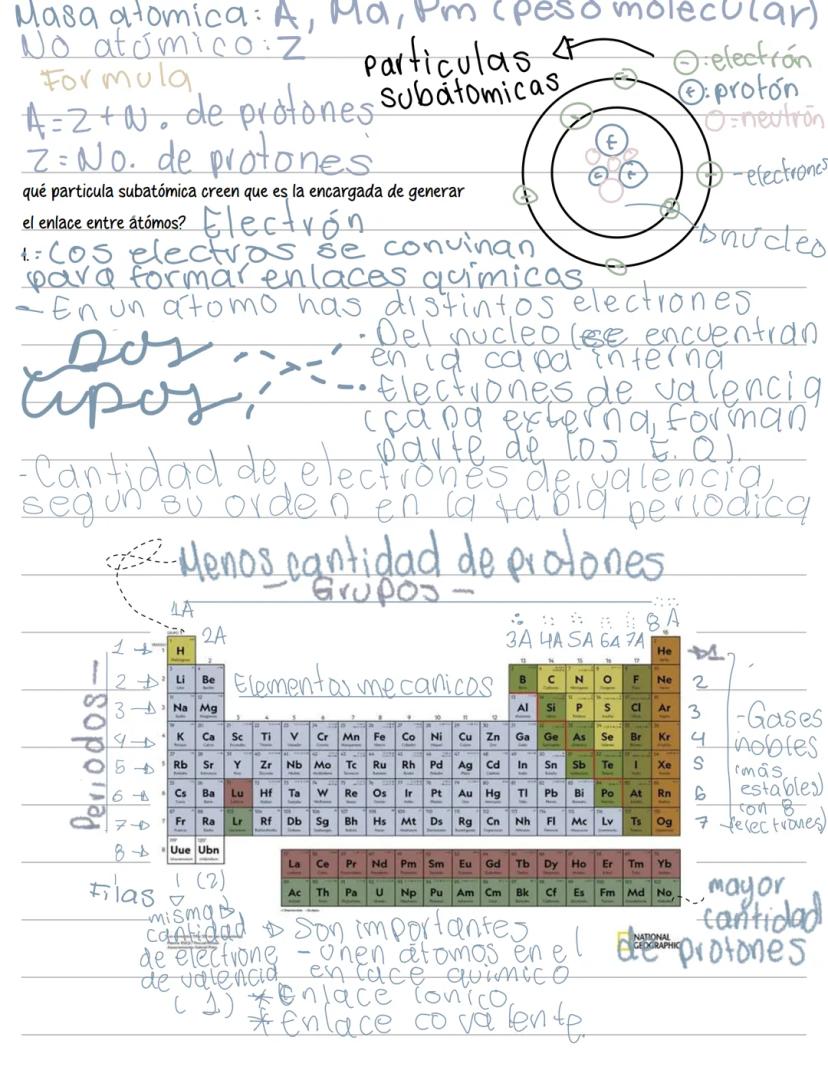 Masa atomica: A, Ma, Pm (peso molecular)
No atómico: Z
Formula
A=Z+N. de protones
Z=No. de protones
particulas
subatomicas
-: electrón
+: protón
O=neutrón
-electrones
nucleo
qué particula subatómica creen que es la encargada de generar
el enlace entre átómos? Electrón
1.: Los electros se convinan
para formar enlaces químicos
- En un atomo has distintos electrones
Dos
tipos
· Del nucleo (se encuentran
en la capa interna
· Electrones de valencia
(capa externa, forman
parte de los E.Q).
- Cantidad de electrones de valencia,
segun su orden en la tabla periodica
Menos cantidad de protones
- Grupos -
1A 2A 3A 4A 5A 6A 7A 8A
Periodos -
Elementos mecanicos
1 H He 1
2 Li Be B C N O F Ne 2
3 Na Mg Al Si P S Cl Ar 3
4 K Ca Sc Ti V Cr Mn Fe Co Ni Cu Zn Ga Ge As Se Br Kr 4
5 Rb Sr Y Zr Nb Mo Tc Ru Rh Pd Ag Cd In Sn Sb Te I Xe 5
6 Cs Ba Lu Hf Ta W Re Os Ir Pt Au Hg Tl Pb Bi Po At Rn 6
7 Fr Ra Lr Rf Db Sg Bh Hs Mt Ds Rg Cn Nh Fl Mc Lv Ts Og 7
8 Uue Ubn
La Ce Pr Nd Pm Sm Eu Gd Tb Dy Ho Er Tm Yb
Ac Th Pa U Np Pu Am Cm Bk Cf Es Fm Md No
- Gases
nobles
(más
estables)
con 8
electrones)
Filas
1 (2)
misma
cantidad
de electrone
de valencia
(1)
Son importantes
- unen átomos en el
enlace químico
* Enlace ionico
* Enlace covalente.
mayor
cantidad
de protones
NATIONAL
GEOGRAPHIC